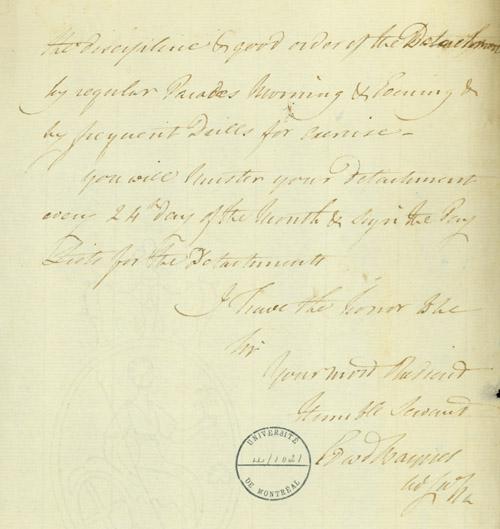 the discipline & good order of the Detachment
by regular Parades Morning & Evening &
by frequent Drills for exercise -
You will Muster your Detachment
every 24th day of the Month & sign the Pay
Lists for the Detachment
I have the honor to be
Sir
Your most Obedient
Humble Servant
Edwd Baynes
UNIVERSITÉ
DE MONTRÉAL